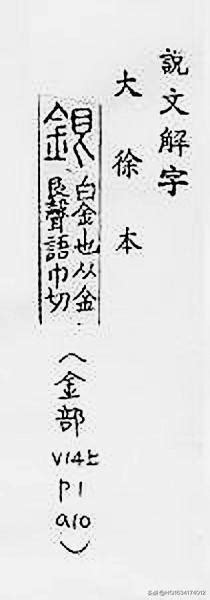 說文解字
大徐本
銀 白金也从金
㫐聲語巾切
(金部
V14上
P1
a10)
头条@HG1634174012